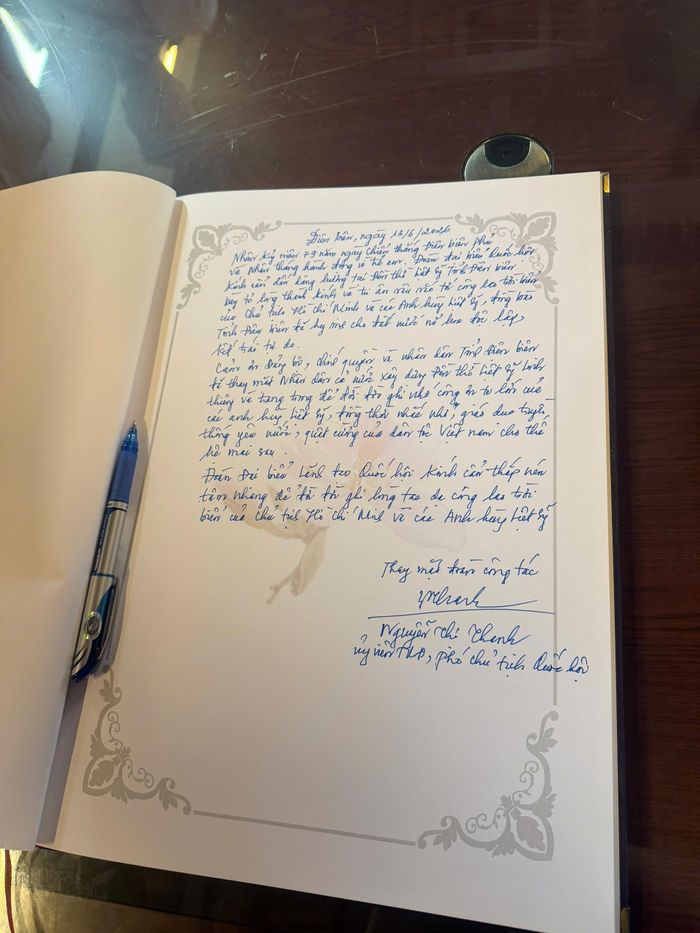 Điện Biên, ngày 13/6/2026
Nhân kỷ niệm 79 năm ngày chiến thắng Điện biên phủ
và Nhân tháng hành động vì trẻ em. Đoàn đại biểu Quốc hội
Kính cẩn đến dâng hương tại Đền thờ Liệt sỹ Tỉnh Điện biên
bày tỏ lòng thành kính và tri ân sâu sắc tới công lao trời biển
của Chủ tịch Hồ Chí Minh và các Anh hùng Liệt sỹ, đồng bào
Tỉnh Điện biên đã hy sinh cho đất nước nở hoa độc lập,
kết trái tự do.
Cảm ơn Đảng bộ, chính quyền và nhân dân Tỉnh Điện biên
đã thay mặt Nhân dân cả nước xây dựng Đền thờ Liệt sỹ linh
thiêng và trang trọng để đời đời ghi nhớ công ơn to lớn của
các anh hùng Liệt sỹ, đồng thời nhắc nhở, giáo dục truyền
thống yêu nước, quật cường của dân tộc Việt nam cho thế
hệ mai sau.
Đoàn Đại biểu Lãnh đạo Quốc hội kính cẩn thắp nén
tâm nhang để đời đời ghi lòng tạc dạ công lao trời
biển của chủ tịch Hồ Chí Minh và các Anh hùng Liệt sỹ
Thay mặt đoàn công tác
Nguyễn Thị Thanh
ủy viên TW Đ, phó chủ tịch Quốc hội